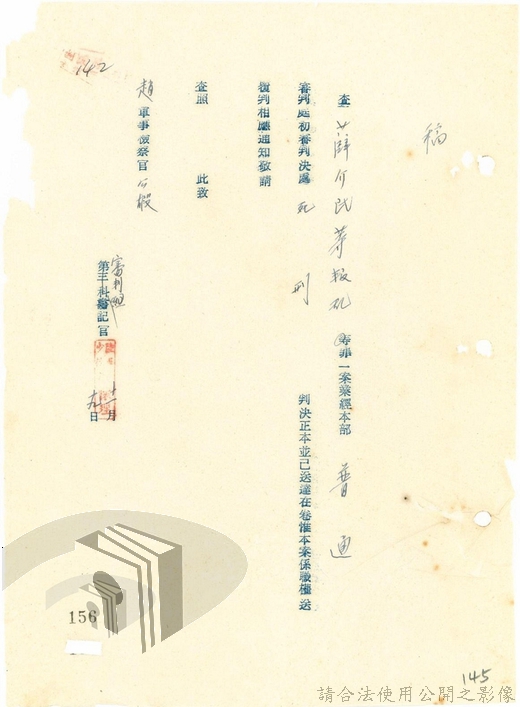 稿
查 薛介民等叛亂 等罪一案業經本部 普通
審判庭初審判決處 死刑 判決正本並已送達在卷惟本案係職權送
覆判相應通知敬請
查照 此致
趙 軍事檢察官 公嘏
審判組
第三科書記官
十一月
日
142
156
145
請合法使用公開之影像